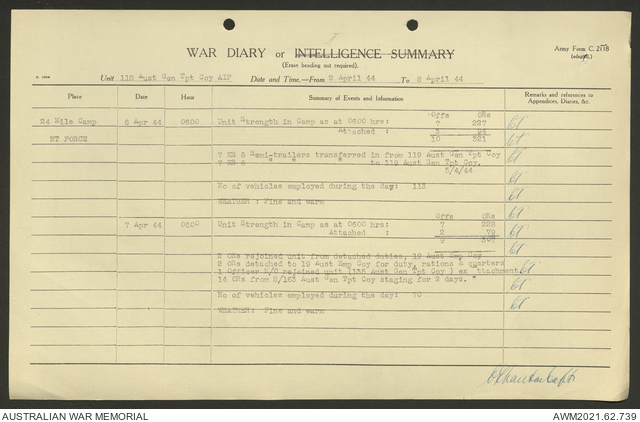 WAR DIARY or INTELLIGENCE SUMMARY
(Erase heading not required).
Army Form C. 2118
Unit 118 Aust Gen Tpt Coy AIF Date and Time.—From 2 April 44 To 8 April 44
Place Date Hour Summary of Events and Information Remarks and references to Appendices, Diaries, &c.
Offs ORs
24 Mile Camp 6 Apr 44 0600 Unit Strength in Camp as at 0600 hrs: 7 227
Attached :
NT FORCE 10 321
Semi-trailers transferred in from 119 Aust Gen Tpt Coy
" " " to 119 Aust Gen Tpt Coy.
5/4/44
No of vehicles employed during the day: 113
WEATHER : Fine and warm
Offs ORs
7 Apr 44 0600 Unit Strength in Camp as at 0600 hrs: 7 228
Attached : 2 79
9 307
2 ORs rejoined unit from detached duties, 19 Aust Emp Coy
2 ORs detached to 19 Aust Emp Coy for duty, rations & quarters
1 Officer rejoined unit (138 Aust Gen Tpt Coy ) ex ttachment
14 ORs from 2/163 Aust Gen Tpt Coy staging for 2 days. "
No of vehicles employed during the day: 70
WEATHER: Fine and warm
AUSTRALIAN WAR MEMORIAL AWM2021.62.739